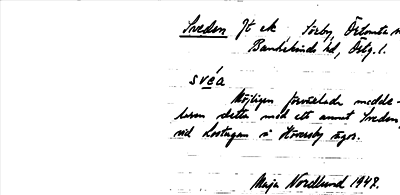 Sveden Jt ek Sörby, Örtomta sn
Bankekinds hd, Östg. l.
svéa
Möjligen förväxlade medde-
laren detta med ett annat Sveden,
vid Lostugan i Hoversby ägor.
Maja Nordlund 1948.